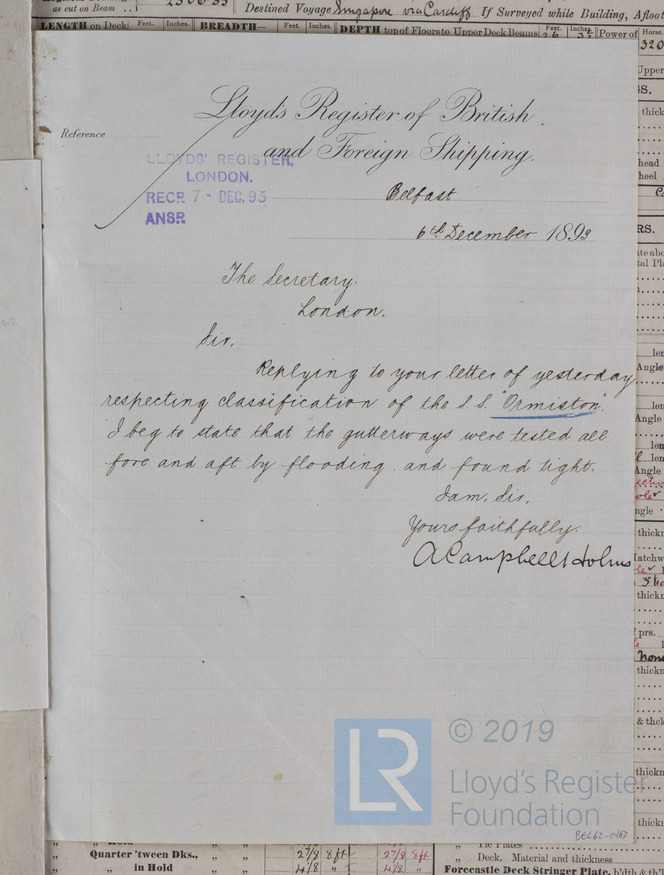 as cut on Beam
Destined Voyage Singapore via Cardiff If Surveyed while Building, Afloat
LENGTH on Deck Feet. Inches. BREADTH— Feet. Inches. DEPTH top of Floors to Upper Deck Beams Feet. Inches. Power of Horse.
320
Lloyd's Register of British
and Foreign Shipping.
Reference
LLOYDS' REGISTER,
LONDON.
RECD. 7 - DEC. 93
ANSD.
Belfast
6th December 1893
The Secretary.
London.
Sir,
Replying to your letter of yesterday
respecting classification of the S.S. "Ormiston"
I beg to state that the gutterways were tested all
fore and aft by flooding and found tight.
I am, Sir,
Yours faithfully.
A Campbell Holms
© 2019
LR
Lloyd's Register
Foundation
BEL62-0167
Quarter 'tween Dks., „ „
in Hold „ „
„ Deck. Material and thickness
Forecastle Deck Stringer Plate,